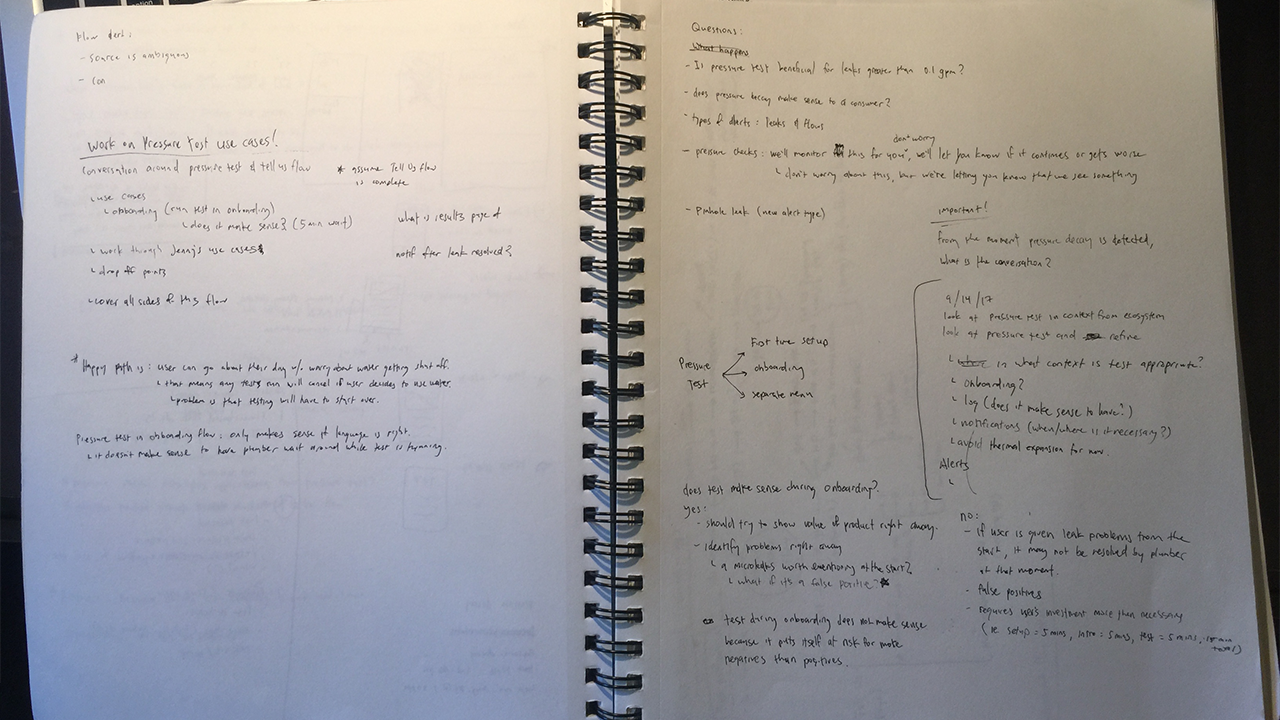 Flow dect:
- source is ambiguous
- con
Work on Pressure Test use cases!
conversation around pressure test & tell us flow
* assume Tell Us flow
is complete
use cases
onboarding (run test in onboarding)
does it make sense? (5 min wait)
what is results page of
work through use cases
notif after leak resolved?
drop off points
cover all sides of this flow
* Happy Path is: user can go about their day w/o worry about water getting shut off.
that means any tests run will cancel if user decides to use water.
problem is that testing will have to start over.
Pressure test in onboarding flow: only makes sense if language is right.
it doesn't make sense to have plumber wait around while test is running.
Questions:
What happens
- Is pressure test beneficial for leaks greater than 0.1 gpm?
- does pressure decay make sense to a consumer?
- types of alerts: leaks & flows
don't worry
- pressure checks: we'll monitor this for you, we'll let you know if it continues or gets worse
don't worry about this, but we're letting you know that we see something
- Pinhole leak (new alert type)
important!
from the moment pressure decay is detected,
what is the conversation?
9/14/17
look at pressure test in context from ecosystem
look at pressure test and refine
in what context is test appropriate?
Onboarding?
log (does it make sense to have?)
notifications (when/where is it necessary?)
avoid thermal expansion for now
Alerts
Pressure
Test
First time setup
onboarding
separate menu
does test make sense during onboarding?
yes:
- should try to show value of product right away.
- identify problems right away
a microleak is worth mentioning at the start?
what if it's a false positive?
test during onboarding does not make sense
because it puts itself at risk for more
negatives than positives.
no:
- if user is given leak problems from the
start, it may not be resolved by plumber
at that moment.
- false positives
- requires user's investment more than necessary
(ie. setup = 5 mins, intro = 5 mins, test = 5 mins, 15 min
total)